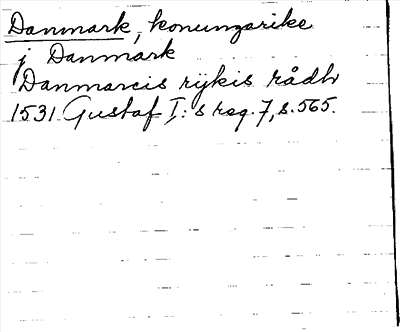 Danmark, konungarike
j Danmark
Danmarcis rijkis rådh
1531 Gustaf I:s reg. 7, s. 565.